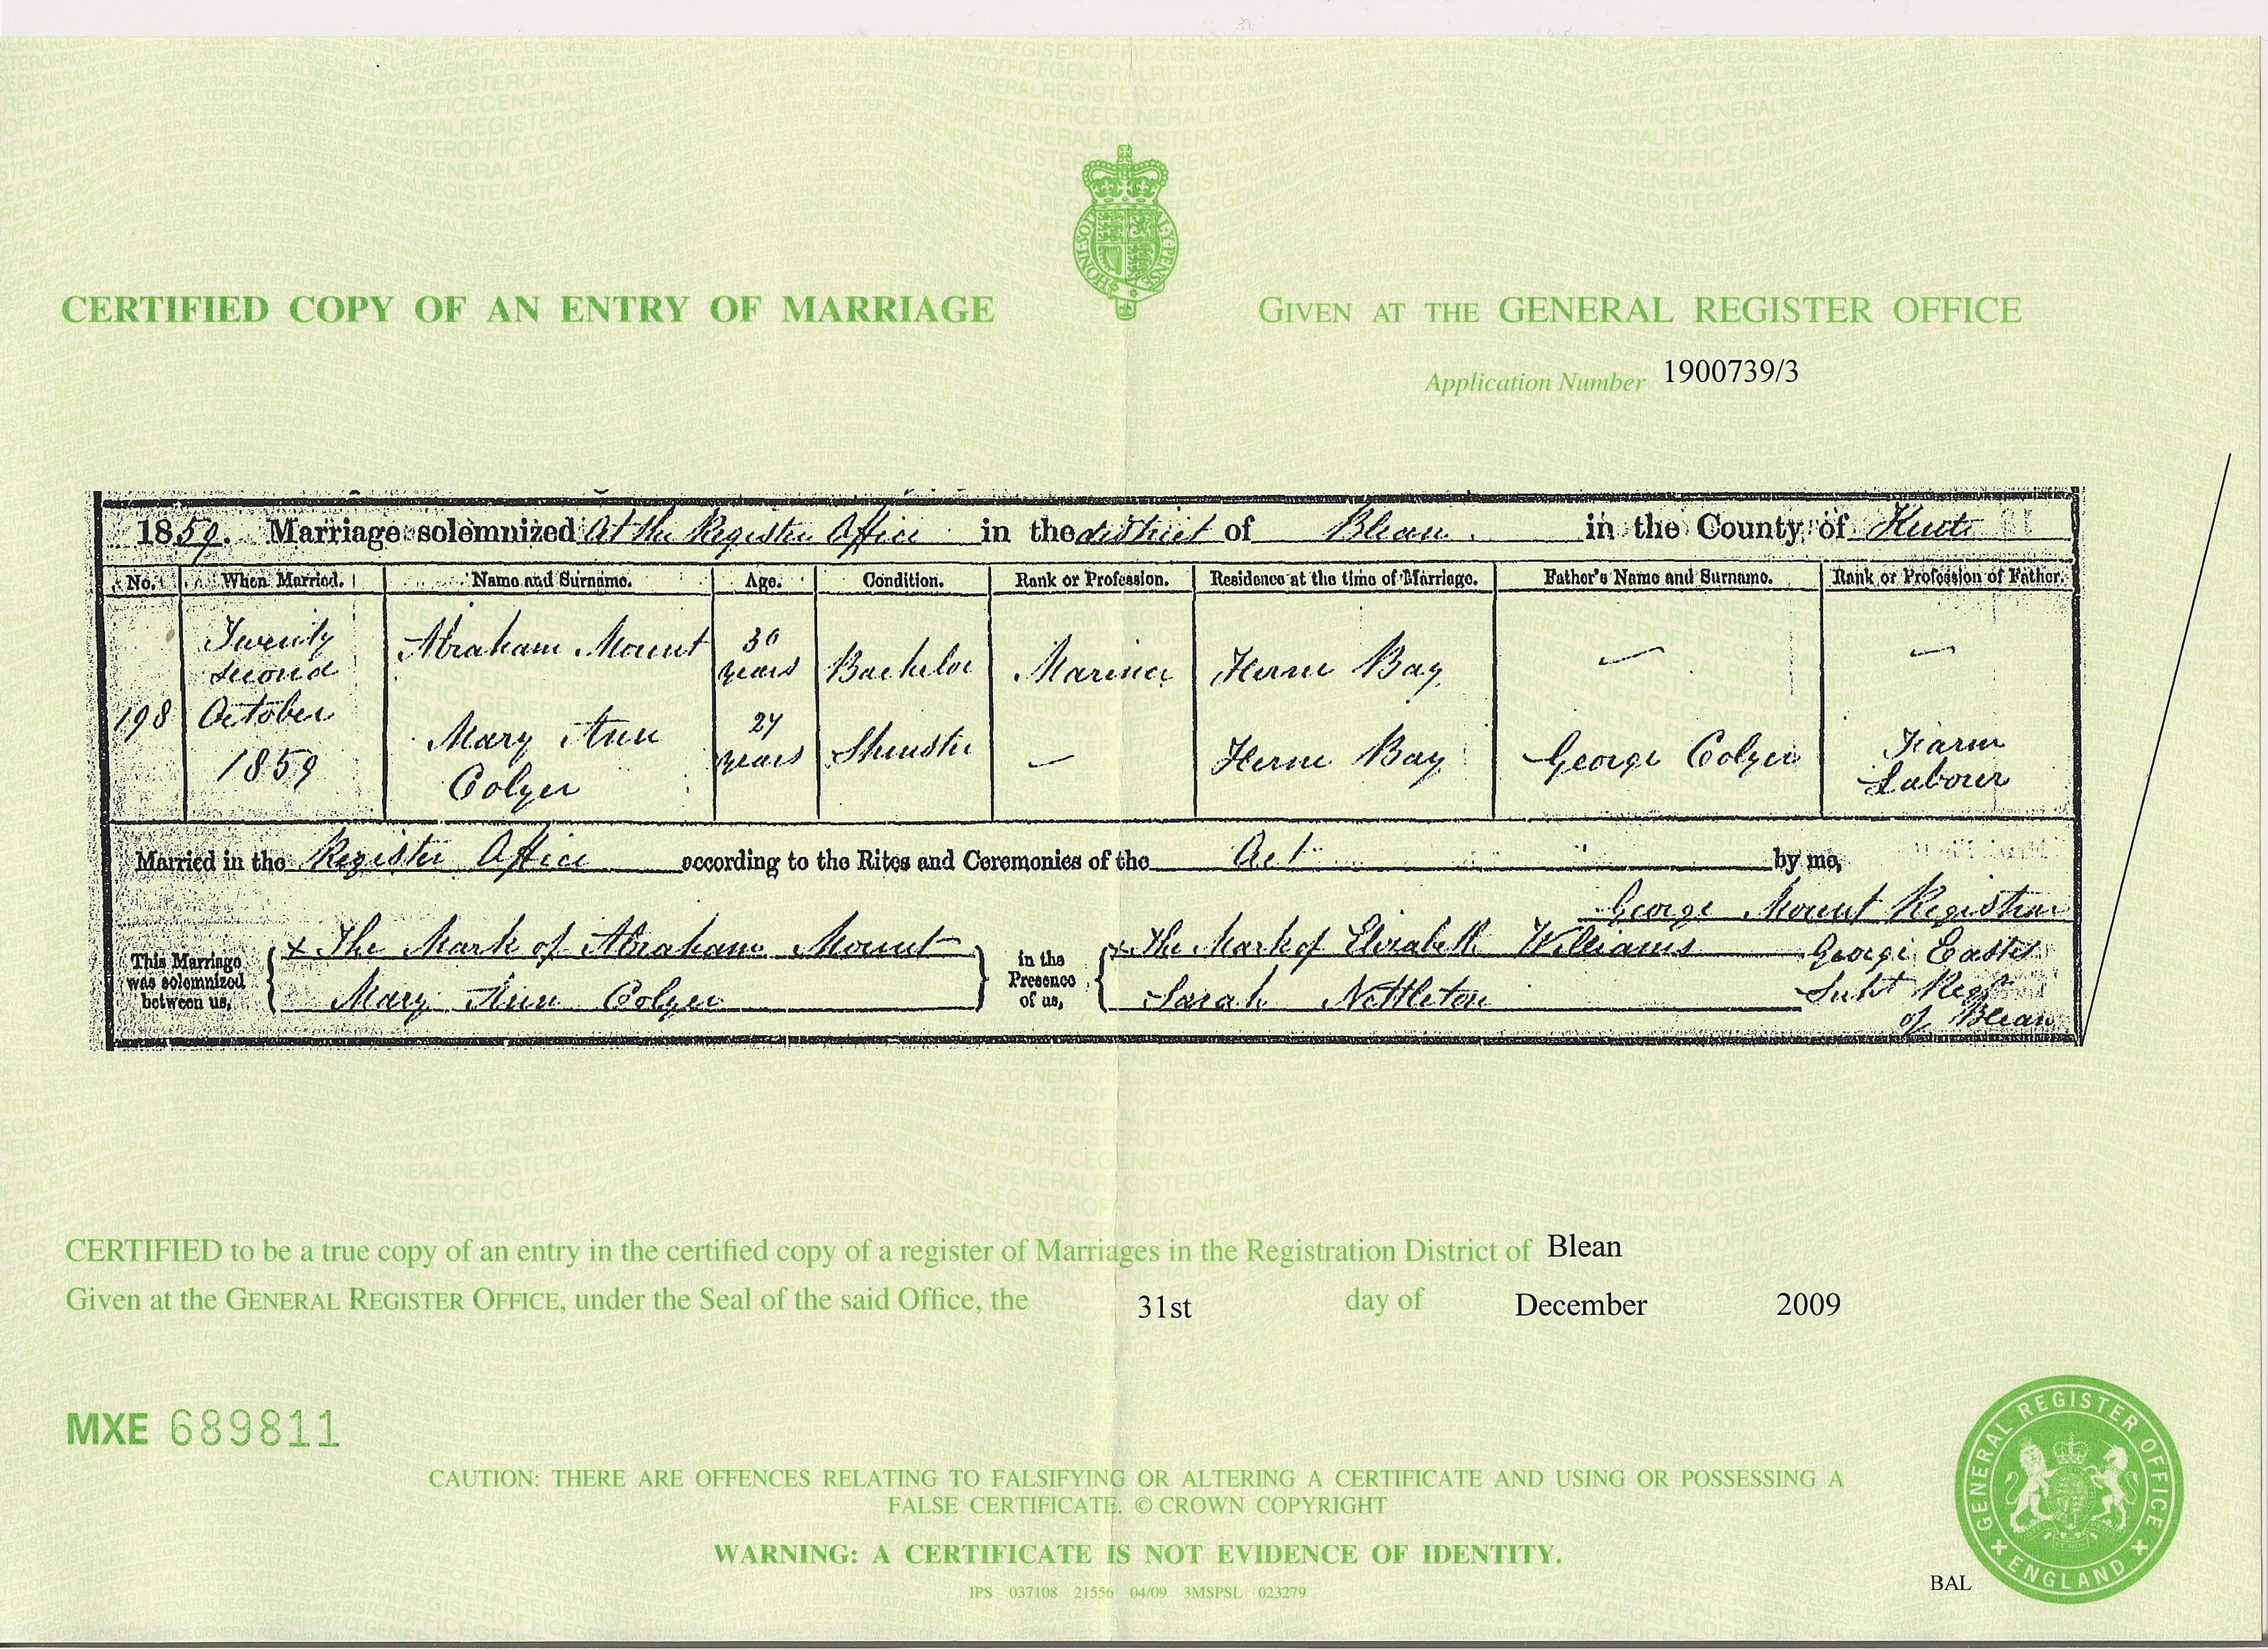 CERTIFIED COPY OF AN ENTRY OF MARRIAGE
GIVEN AT THE GENERAL REGISTER OFFICE
Application Number 1900739/3
1859. Marriage solemnized At the Register Office in the district of Blean in the County of Kent
No. When Married. Name and Surname. Age. Condition. Rank or Profession. Residence at the time of Marriage. Father's Name and Surname. Rank or Profession of Father.
198 Twenty second October 1859 Abraham Mount 30 years Bachelor Mariner Herne Bay — —
Mary Ann Colyer years Spinster — Herne Bay George Colyer Farm Labourer
Married in the Register Office according to the Rites and Ceremonies of the Act by me,
George Mount Registrar
This Marriage was solemnized between us, x The Mark of Abraham Mount
Mary Ann Colyer
in the Presence of us, x The Mark of Elizabeth Williams
Sarah Nettleton
George Eastes
Supt Regr
of Blean
CERTIFIED to be a true copy of an entry in the certified copy of a register of Marriages in the Registration District of Blean
Given at the GENERAL REGISTER OFFICE, under the Seal of the said Office, the 31st day of December 2009
MXE 689811
CAUTION: THERE ARE OFFENCES RELATING TO FALSIFYING OR ALTERING A CERTIFICATE AND USING OR POSSESSING A
FALSE CERTIFICATE. © CROWN COPYRIGHT
WARNING: A CERTIFICATE IS NOT EVIDENCE OF IDENTITY.
IPS 037108 21556 04/09 3MSPSL 023279
BAL
GENERAL REGISTER OFFICE
ENGLAND